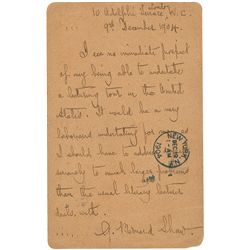 10 Adelphi Terrace, W.C.
9th December 1904.
I see no immediate prospect
of my being able to undertake
a lecturing tour in the United
States. It would be a very
laborious undertaking for me as
I should have to address
seriously to much larger
than the usual literary
with
G. Bernard Shaw
NEW YORK, N.Y.
DEC 19
AM
1904